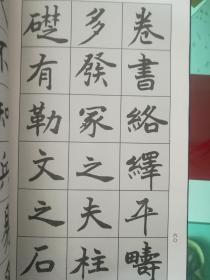 卷書絡繹平疇
多發冢之夫柱
礎有勒文之石
六〇